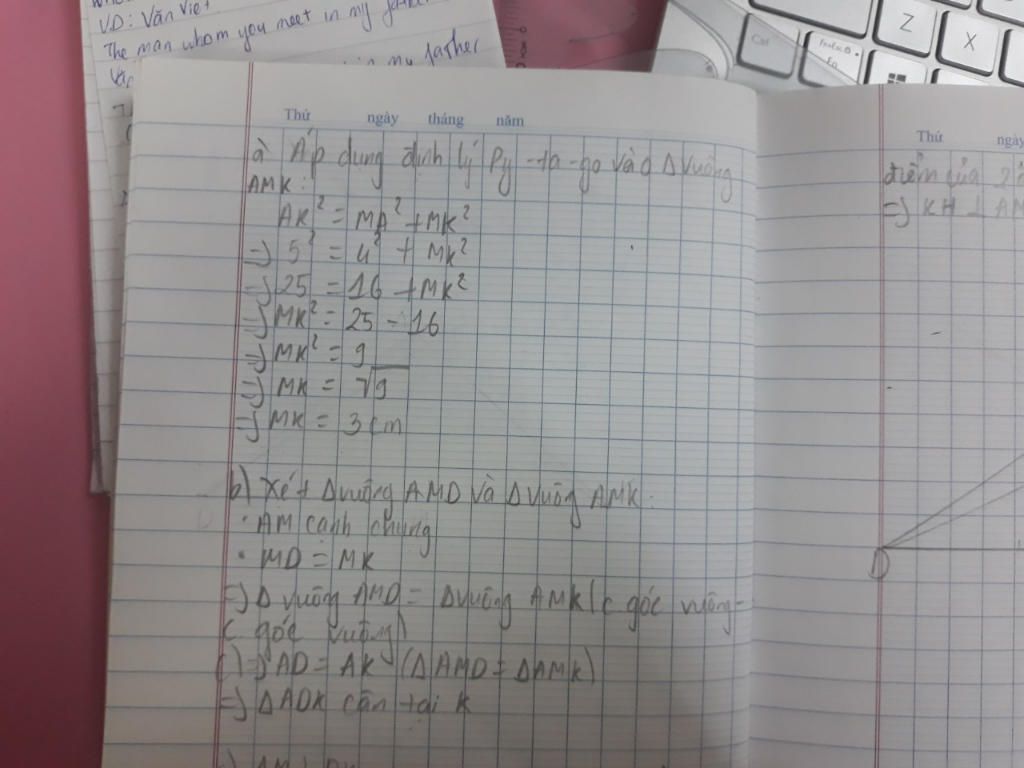 VD: Văn Việt
The man whom you meet in my father
in my father
Ctrl
Z
X
Thứ ngày tháng năm
a Áp dụng định lý Py-ta-go vào Δ vuông
AMK:
AK² = MA² + MK²
=> 5² = 4² + MK²
=> 25 = 16 + MK²
=> MK² = 25 - 16
=> MK² = 9
=> MK = √9
=> MK = 3 cm
b) Xét Δ vuông AMD và Δ vuông AMK:
· AM cạnh chung
· MD = MK
=> Δ vuông AMD = Δ vuông AMK (c góc vuông-
c góc vuông)
c) => AD = AK (ΔAMD = ΔAMK)
=> ΔADK cân tại K
Thứ
điểm của 2
=> KH ⊥ AM
D